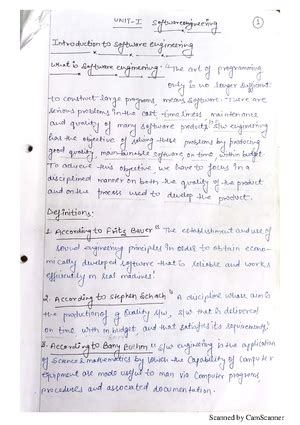 UNIT-I Softwareengineering
1
Introduction to software engineering
What is Software engineering:- "The art of programing
only is no longer sufficient
to construct large programs, means software. There are
serious problems in the cost, timeliness maintenance
and quality of many software products". S/w engineering
has the objective of solving these problems by producing
good quality, maintainable software on time, within budget.
To achieve this objective we have to focus in a
disciplined manner on both the quality of the product
and on the process used to develop the product.
Definitions:
1. According to Fritz Bauer "The establishment and use of
sound engineering principles in order to obtain econo-
mically developed software that is reliable and works
efficiently on real machines".
2. According to Stephen Schach "A discipline whose aim is
the production of quality s/w, s/w that is delivered
on time with in budget, and that satisfies its requirements.
3. According to Barry Boehm "S/w engineering is the application
of science & mathematics by which the capability of computer
equipment are made useful to man via computer programs,
procedures and associated documentation.
Scanned by CamScanner